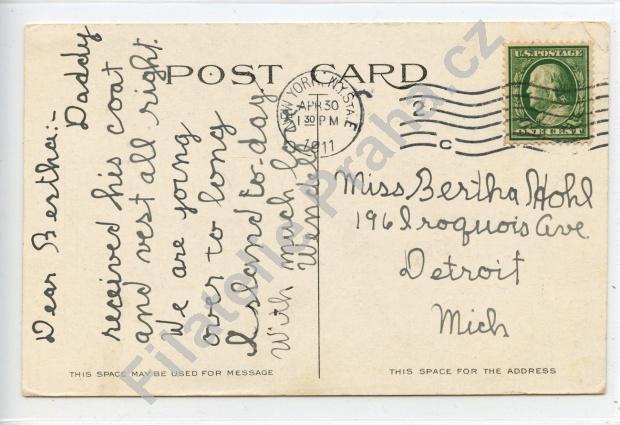 POST CARD
U.S. POSTAGE
ONE CENT
NEW YORK, N.Y. STA. E
APR 30
1 30 PM
1911
2
C
Dear Bertha:-
Daddy
received his coat
and vest all right.
We are going
over to Long
Island to-day.
With much love
Miss Bertha Hohl
196 Iroquois Ave
Detroit
Mich
THIS SPACE MAY BE USED FOR MESSAGE
THIS SPACE FOR THE ADDRESS
Filatelie Praha.cz